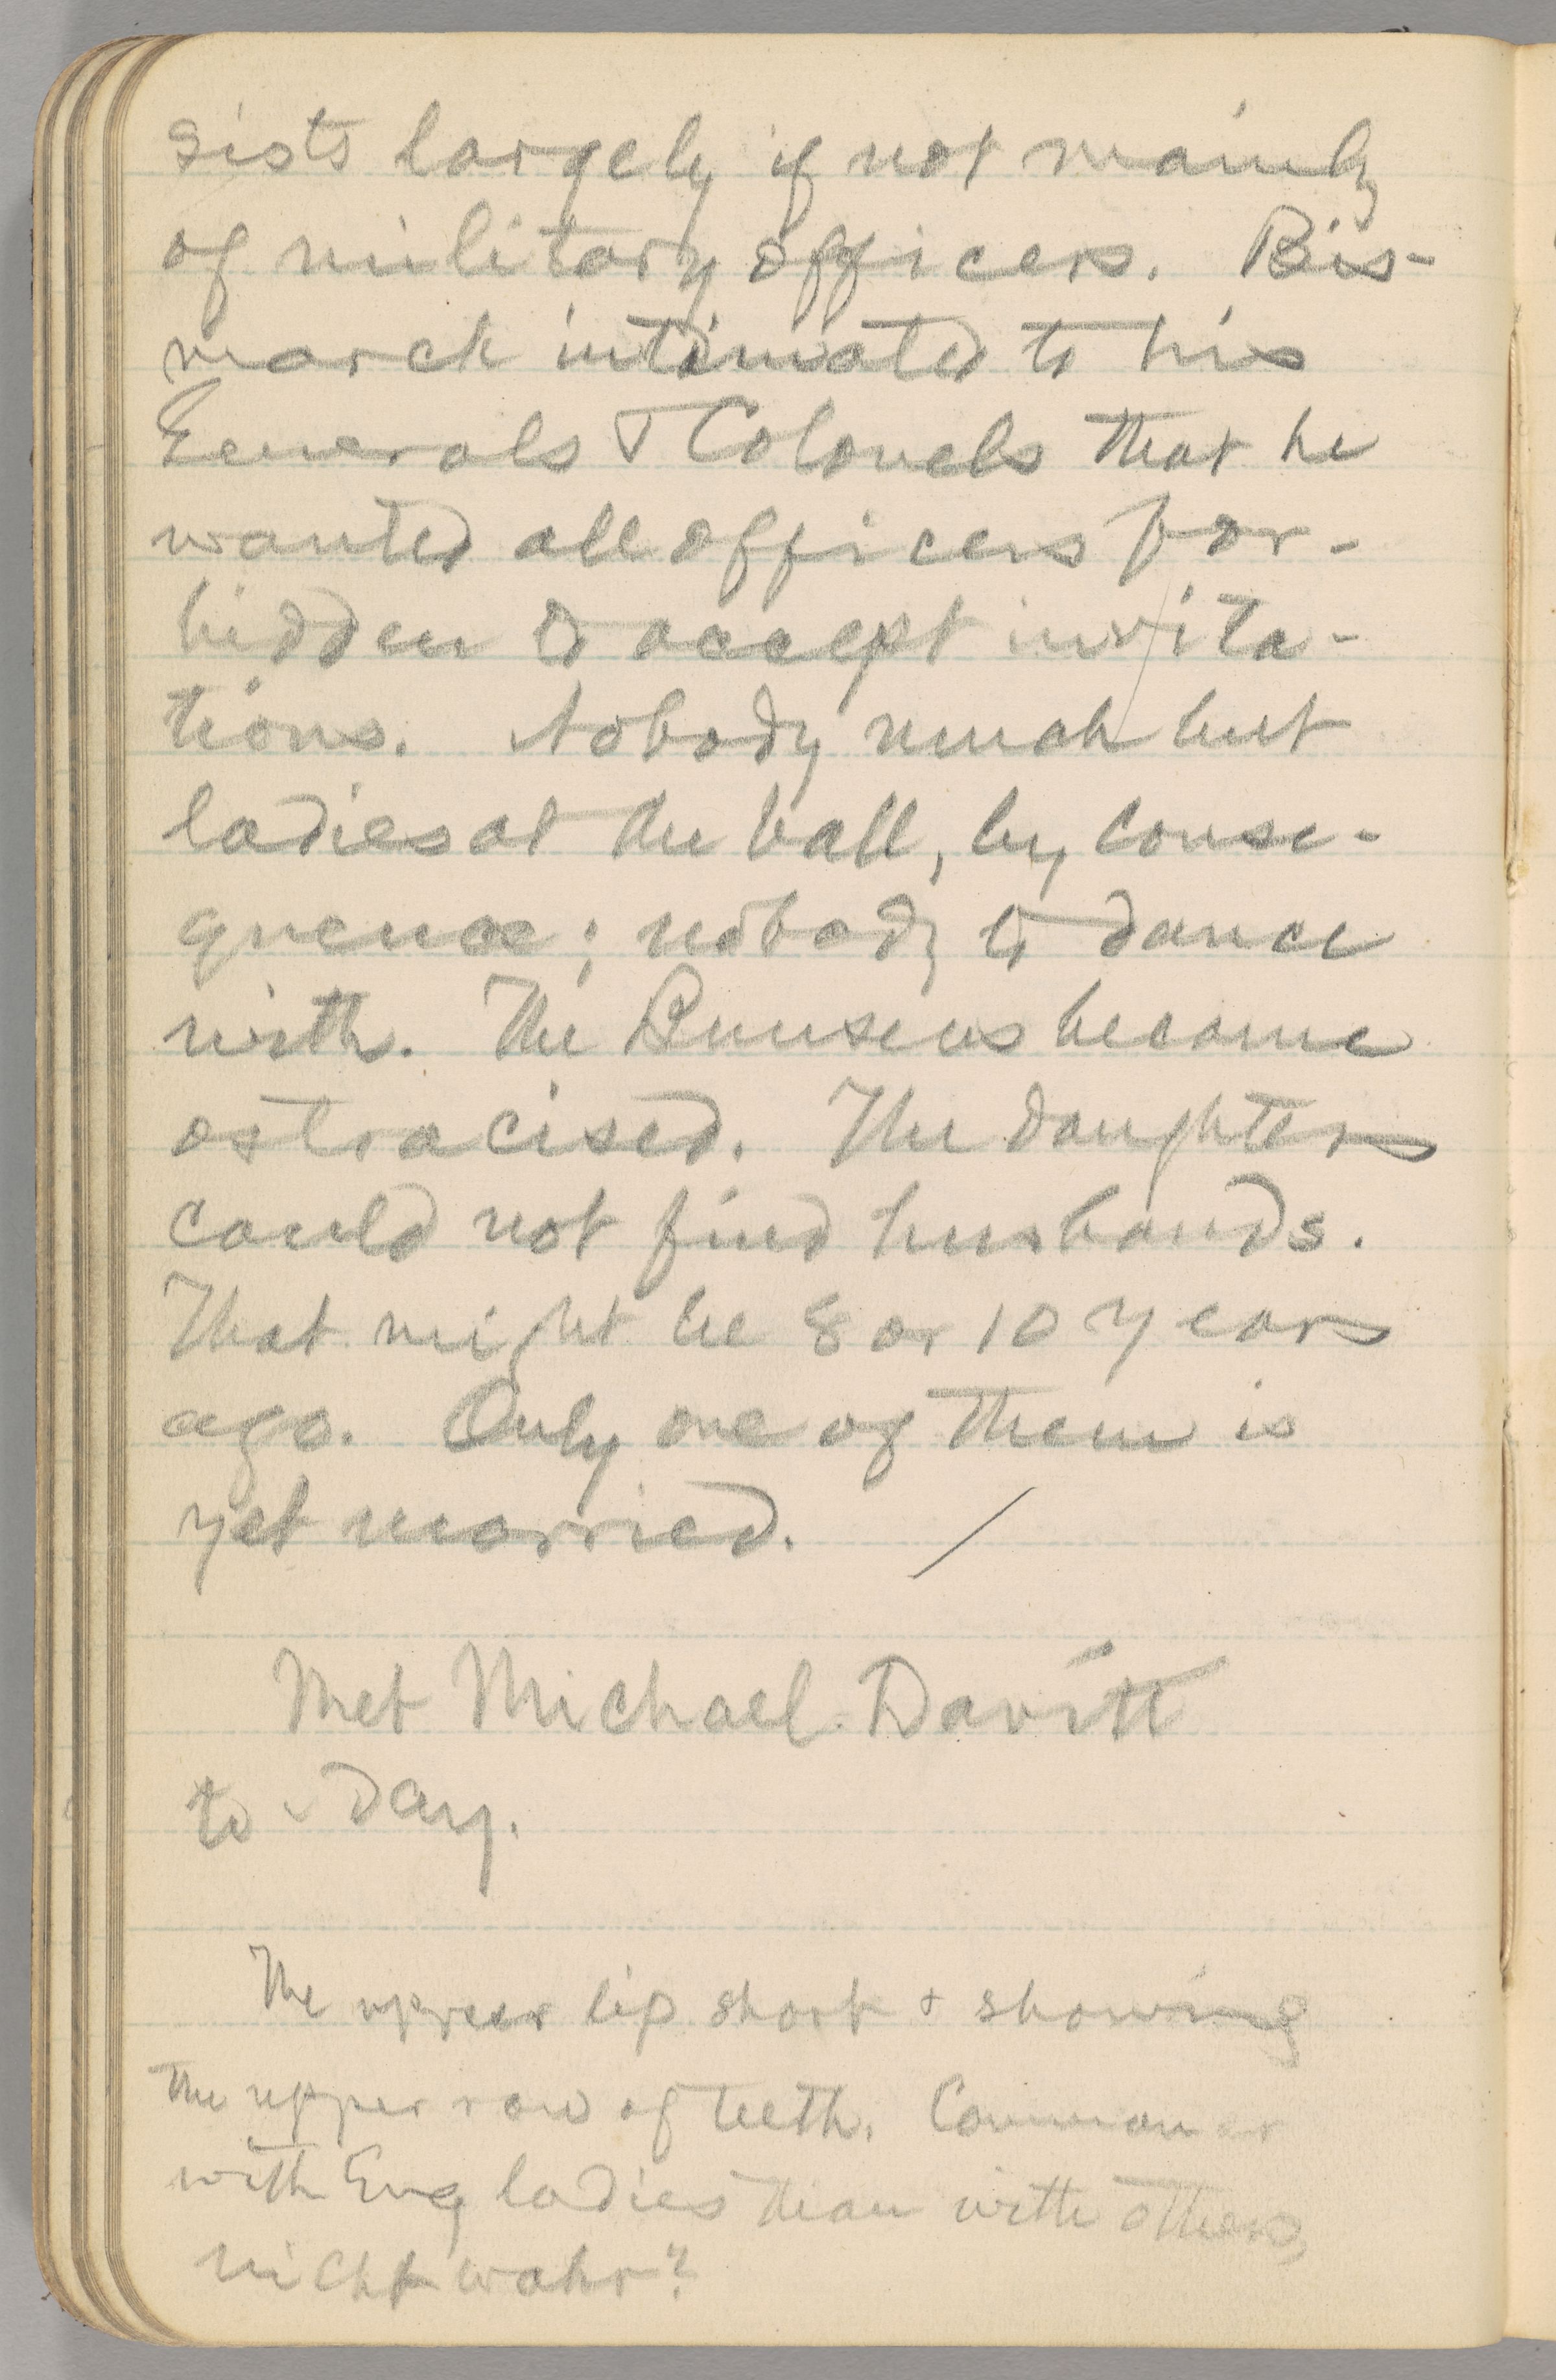 sists largely if not mainly
of military officers. Bis-
marck intimated to his
Generals & Colonels that he
wanted all officers for-
bidden to accept invita-
tions. Nobody much but
ladies at the ball, by conse-
quence; nobody to dance
with. The Bunsens became
ostracised. The daughters
could not find husbands.
That might be 8 or 10 years
ago. Only one of them is
yet married. /
Met Michael Davitt
to-day.
The upper lip short & showing
the upper row of teeth. Commoner
with Eng ladies than with others,
nicht wahr?